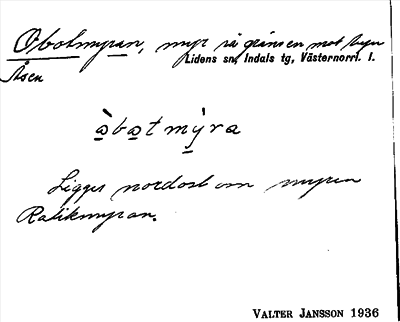 Obotmyran, myr på gränsen mot byn
Lidens sn, Indals tg, Västernorrl. l.
Åsen
àbatmỳra
Ligger nordost om myren
Ratikmyran.
VALTER JANSSON 1936